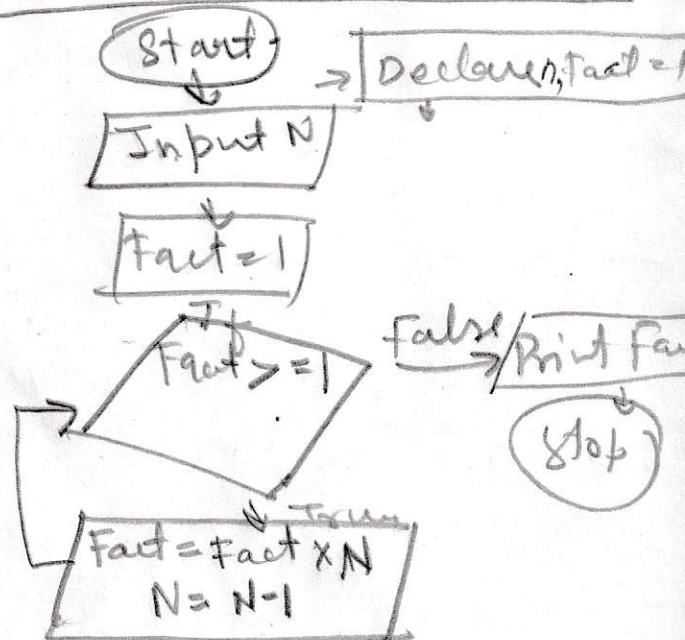 Start
Declare n, Fact = 1
Input N
Fact = 1
If
Fact >= 1
False
Print Fa
Stop
True
Fact = Fact × N
N = N-1